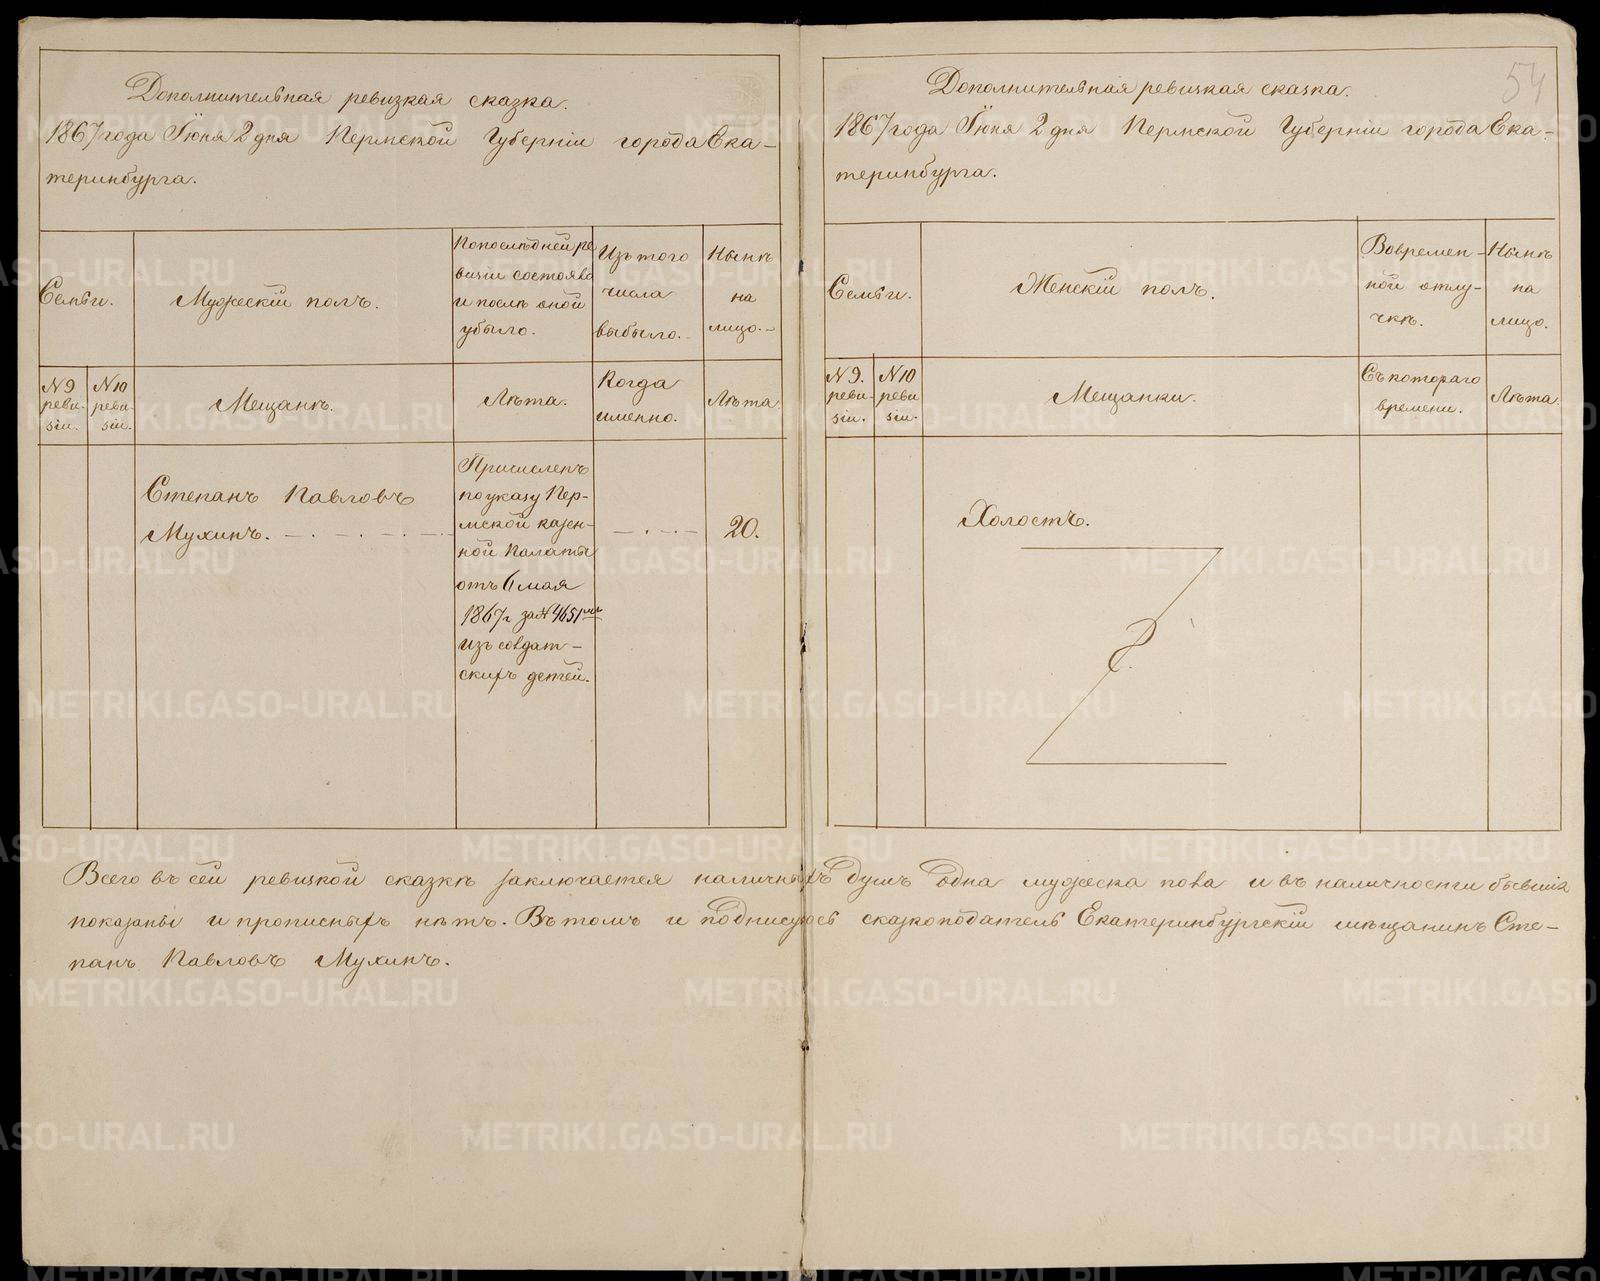 Дополнительная ревизкая сказка.
1867 года Іюня 2 дня Пермской Губерніи города Ека-
теринбурга.
Семьи.
Мужескій полъ.
Попослѣдней ре
визіи состояло
и послѣ оной
убыло.
Изъ того
числа
выбыло.
Нынѣ
на
лицо.
№ 9
реви-
зіи.
№ 10
реви-
зіи.
Мещанѣ.
Лѣта.
Когда
именно.
Лѣта.
Степанъ Павловъ
Мухинъ.
Причисленъ
по указу Пер-
мской казен-
ной Палаты
отъ 6 мая
1867 г за № 4651мъ
изъ солдат-
скихъ детей.
20.
54
Дополнительная ревизкая сказка.
1867 года Іюня 2 дня Пермской Губерніи города Ека-
теринбурга.
Семьи.
Женскій полъ.
Вовремен-
ной отлу-
чкѣ.
Нынѣ
на
лицо.
№ 9.
реви-
зіи.
№ 10
реви
зіи.
Мещанки.
Съ котораго
времени.
Лѣта.
Холостъ.
Всего въ сей ревизкой сказкѣ заключается наличныхъ душъ одна мужеска пола и въ наличности бывшія
показаны и прописныхъ нѣтъ. Въ томъ и подписуюсь сказкоподатель Екатеринбургскій мѣщанинъ Сте-
панъ Павловъ Мухинъ.
METRIKI.GASO-URAL.RU